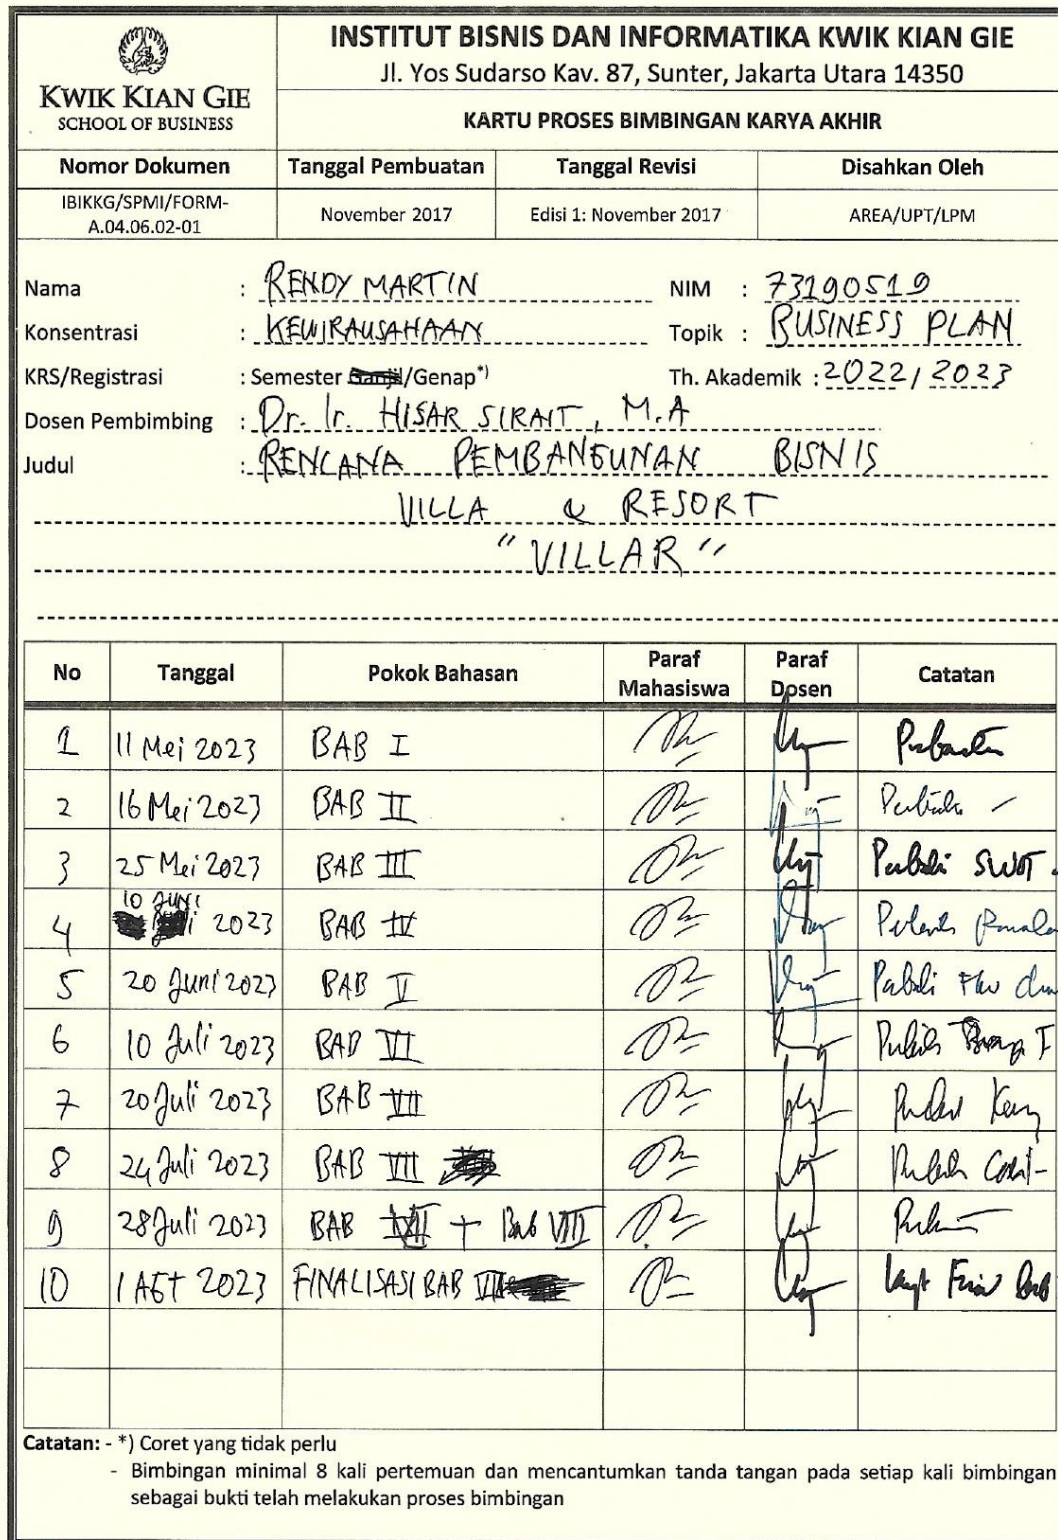 KWIK KIAN GIE
SCHOOL OF BUSINESS
INSTITUT BISNIS DAN INFORMATIKA KWIK KIAN GIE
Jl. Yos Sudarso Kav. 87, Sunter, Jakarta Utara 14350
KARTU PROSES BIMBINGAN KARYA AKHIR
Nomor Dokumen Tanggal Pembuatan Tanggal Revisi Disahkan Oleh
IBIKKG/SPMI/FORM-
A.04.06.02-01 November 2017 Edisi 1: November 2017 AREA/UPT/LPM
Nama : RENDY MARTIN NIM : 73190519
Konsentrasi : KEWIRAUSAHAAN Topik : BUSINESS PLAN
KRS/Registrasi : Semester Ganjil/Genap*) Th. Akademik : 2022/2023
Dosen Pembimbing : Dr. Ir. HISAR SIRAIT, M.A
Judul : RENCANA PEMBANGUNAN BISNIS
VILLA & RESORT
"VILLAR"
No Tanggal Pokok Bahasan Paraf Mahasiswa Paraf Dosen Catatan
1 11 Mei 2023 BAB I
2 16 Mei 2023 BAB II
3 25 Mei 2023 BAB III SWOT
4 10 Juni 2023 BAB IV
5 20 Juni 2023 BAB V
6 10 Juli 2023 BAB VI
7 20 Juli 2023 BAB VII
8 24 Juli 2023 BAB VII
9 28 Juli 2023 BAB + Bab VIII
10 1 AGT 2023 FINALISASI BAB
Catatan: - *) Coret yang tidak perlu
- Bimbingan minimal 8 kali pertemuan dan mencantumkan tanda tangan pada setiap kali bimbingan
sebagai bukti telah melakukan proses bimbingan